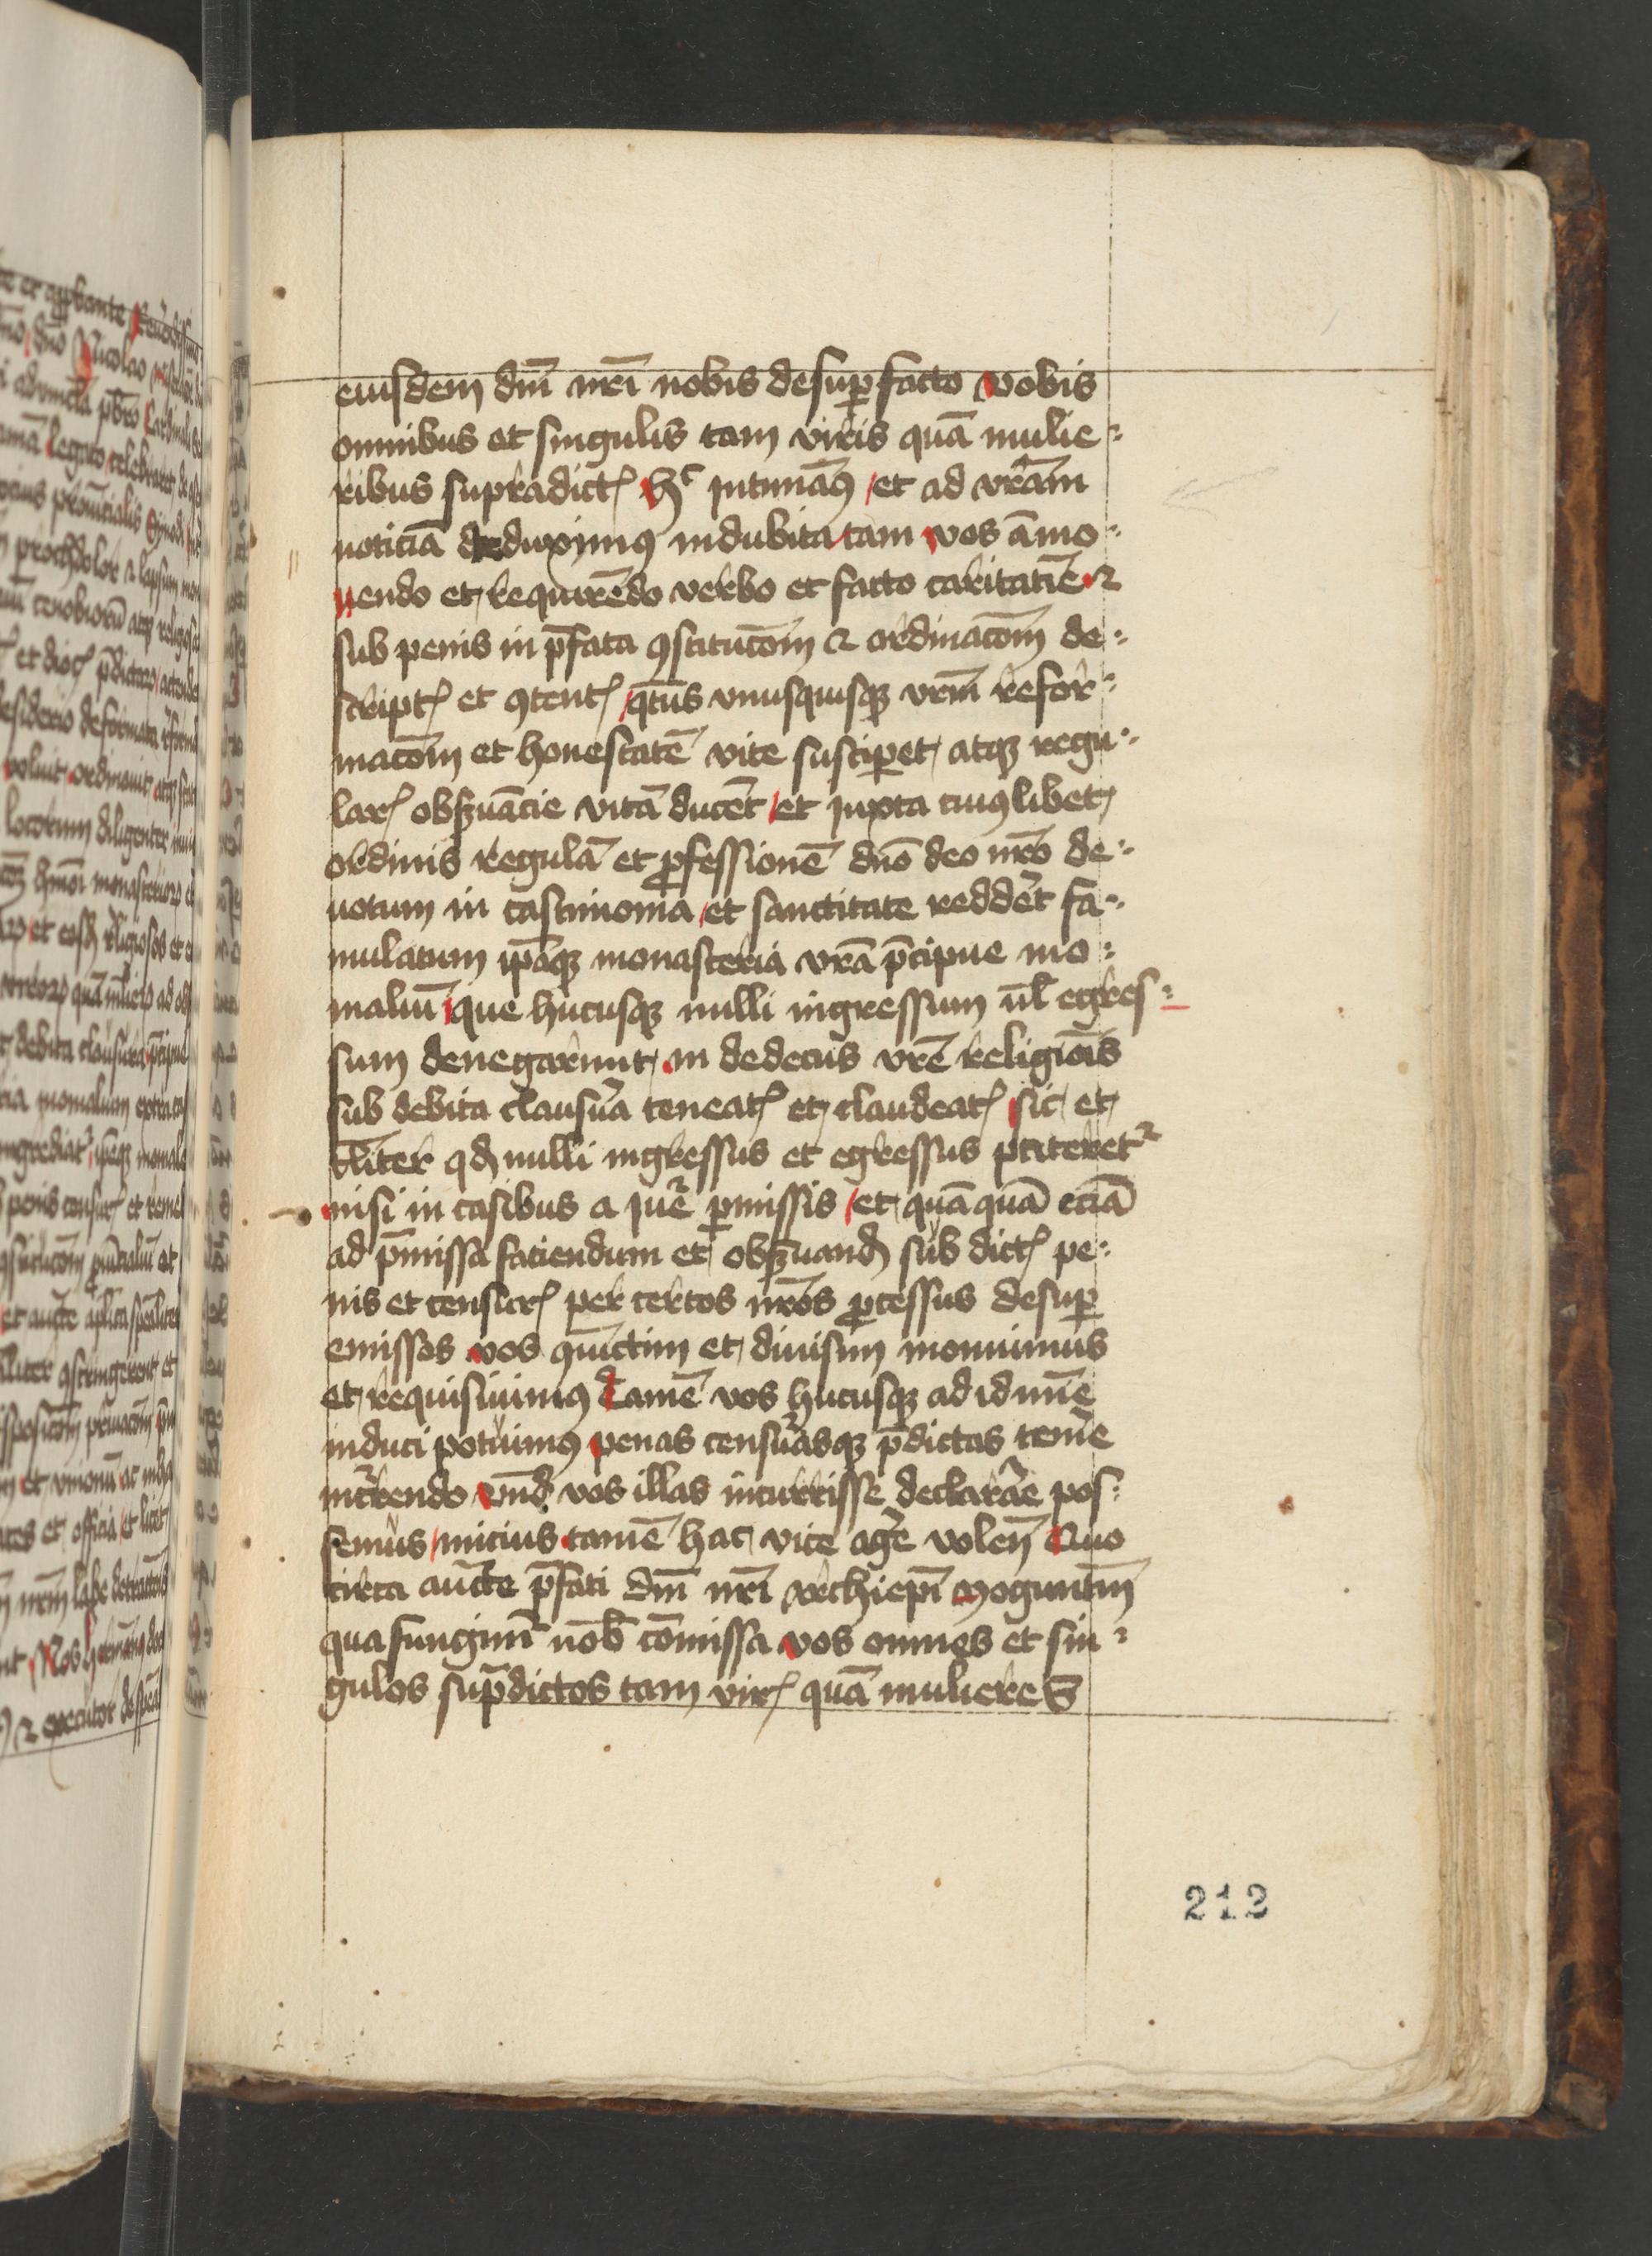 eiusdem dn̄i nr̄i nobis desup̱ facto vobis
omnibus et singulis tam viris quā mulie
ribus supradictꝭ hͨ intimamꝰ et ad vr̄am
noticiā deduximꝰ indubitatam vos am̄o
nendo et requirēdo verbo et facto caritatiē ⁊
sub penis in p̄fata ꝯstituc̄om ⁊ ordinac̄om de
scriptꝭ et ꝯtentꝭ qt̄us vnusquisqꝫ vr̄m refor
mac̄om et honestatē vite suscip̱et atqꝫ regu
larꝭ obẜuācie vitā ducēt et iuxta cuiꝰlibet
ordinis regulā et ꝓfessionē dn̄o deo nr̄o de
uotum in castimonia et sanctitate reddēt fa
mulatum ip̄aqꝫ monasteria vr̄a p̄cipue mo
malium que hucusqꝫ nulli ingressum ul̄ egres
sum denegarunt in dedecus vr̄e religiōis
sub debita clausura teneatꝭ et claudeatꝭ sic et
tal̄iter qd̄ nulli ingressus et egressus pateret᷑
nisi in casibus a iure p̱missis et quāquā eciā
ad p̄missa faciendum et obẜuand̄ sub dictꝭ pe
nis et censurꝭ per certos nr̄os ꝓcessus desup̱
emissos vos ꝯiūctim et diuisim monuimus
et requisiuimꝰ Tamē vos hucusqꝫ ad id mīe
induci potuimꝰ penas censurasqꝫ p̄dictas temere
incurrendo vnd̄ vos illas incurrisse declarare pos
semus micius tamē hac vice agere volen̄ Quo
circa auct̄e p̄fati dn̄i nr̄i Archiep̄i Moguntin̄
qua fungimur nob̄ com̄issa vos omnes et sin
gulos sup̄dictos tam virꝭ quā mulieres
212